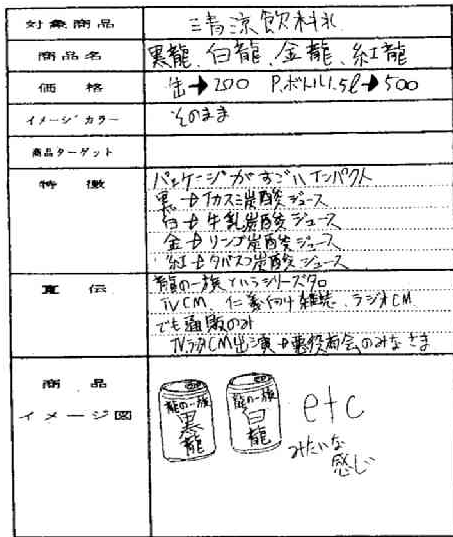 対象商品 清涼飲料水
商品名 黒龍、白龍、金龍、紅龍
価格 缶→200 P.ボトル1.5ℓ→500
イメージカラー そのまま
商品ターゲット
特徴 パッケージがすごいインパクト
黒→カス炭酸ジュース
白→牛乳炭酸ジュース
金→リンゴ炭酸ジュース
紅→タバスコ炭酸ジュース
宣伝 龍の一族というシリーズ
TVCM 仁義 雑誌、ラジオCM
でも通販のみ
TVラジオCM出演→悪役商会のみなさま
商品
イメージ図
龍の一族 黒龍
龍の一族 白龍
etc
みたいな
感じ